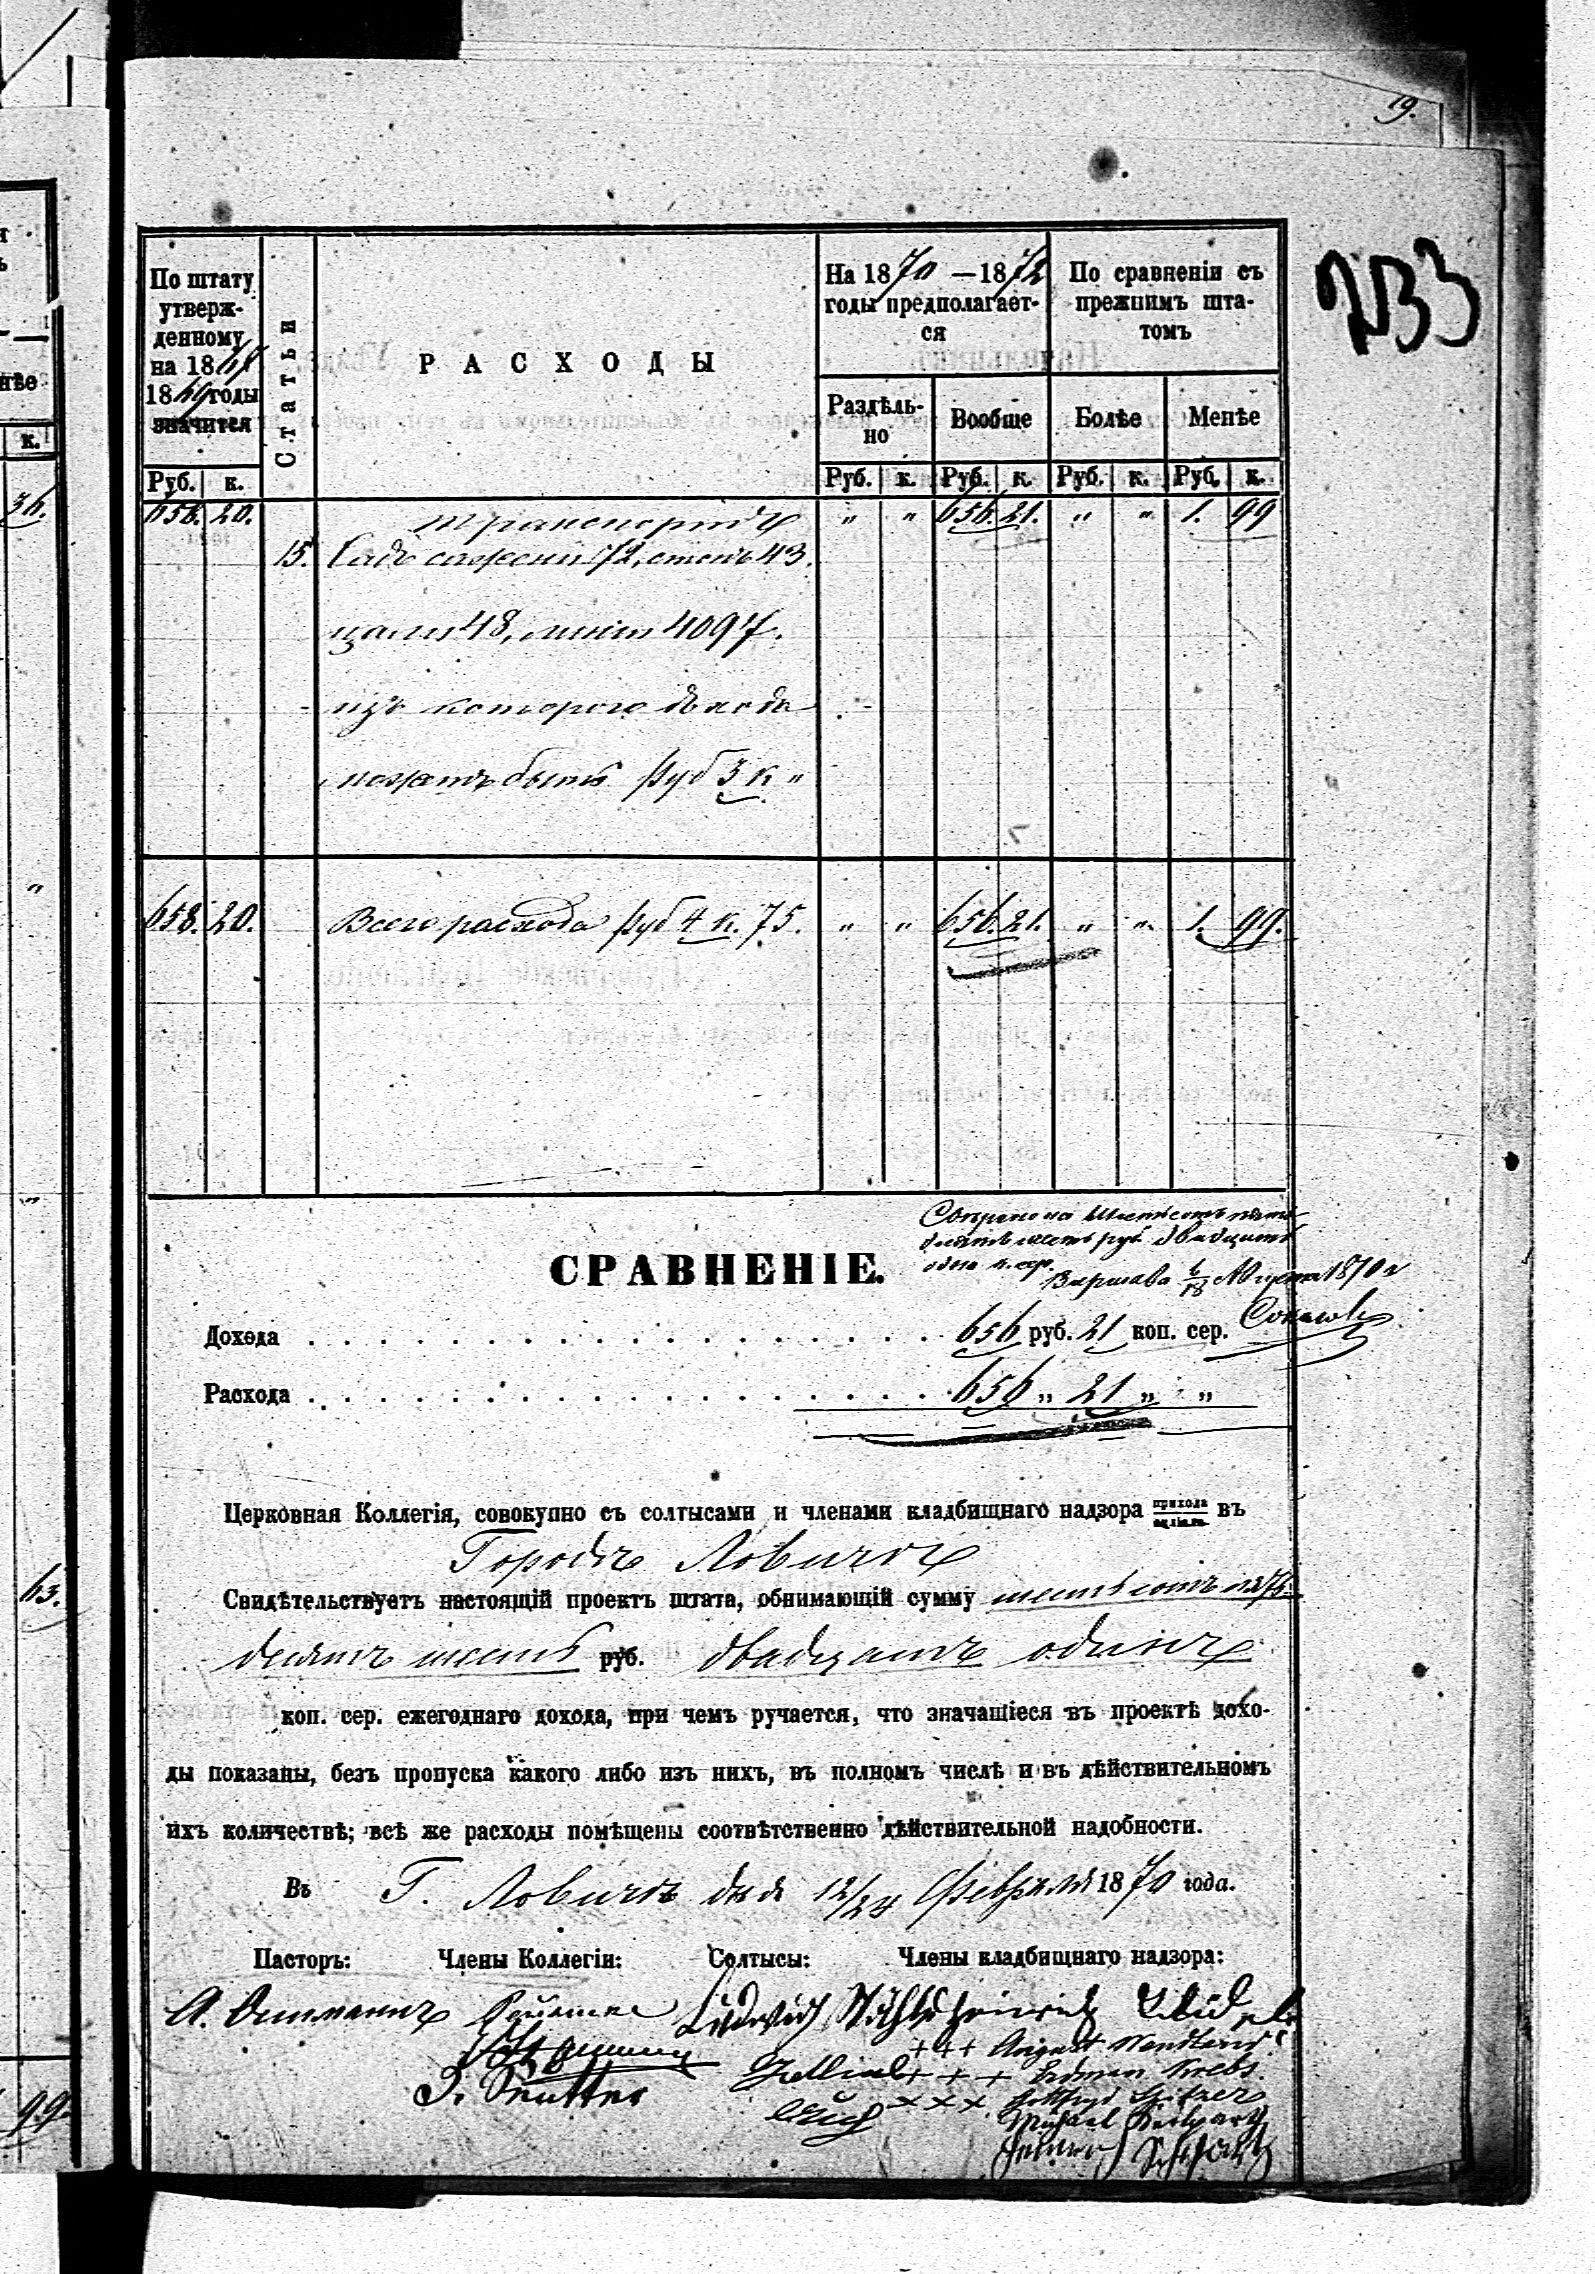 19.
733
По штату утверж-денному на 1868/1869 годы значится
Статьи
РАСХОДЫ
На 1870 — 1872 годы предполагает-ся
По сравненіи съ прежнимъ шта-томъ
Раздѣль-но
Вообще
Болѣе
Менѣе
Руб. к. Руб. к. Руб. к. Руб. к. Руб. к.
658. 20. транспортъ „ „ 656. 21. „ „ 1. 99
15. Садъ сажени 72, стопъ 43.
цали 48, линіи 4097.
изъ котораго дохода
можетъ быть руб 3 к „
658. 20. Всего расхода руб 4 к. 75. „ „ 656. 21. „ „ 1. 99.
Шестьсотъ пять
десятъ шесть руб двадцать
одна к. сер.
Варшава 6/18 Августа 1870 г
СРАВНЕНІЕ.
Дохода . . . . 656 руб. 21 коп. сер.
Расхода . . . . 656 „ 21 „ „
Церковная Коллегія, совокупно съ солтысами и членами кладбищнаго надзора прихода въ
Городѣ Ловичѣ
Свидѣтельствуетъ настоящій проектъ штата, обнимающій сумму шестьсотъ пять
десятъ шесть руб. двадцать одинъ
коп. сер. ежегоднаго дохода, при чемъ ручается, что значащіеся въ проектѣ дохо-
ды показаны, безъ пропуска какого либо изъ нихъ, въ полномъ числѣ и въ дѣйствительномъ
ихъ количествѣ; всѣ же расходы помѣщены соотвѣтственно дѣйствительной надобности.
Въ Г. Ловичѣ дня 12/24 Февраля 1870 года.
Пасторъ: Члены Коллегіи: Солтысы: Члены кладбищнаго надзора:
Ludwich Heinrich
+++ August Wendland
+ + + Erdman Krebs.
× × × Gottfryd
Michael